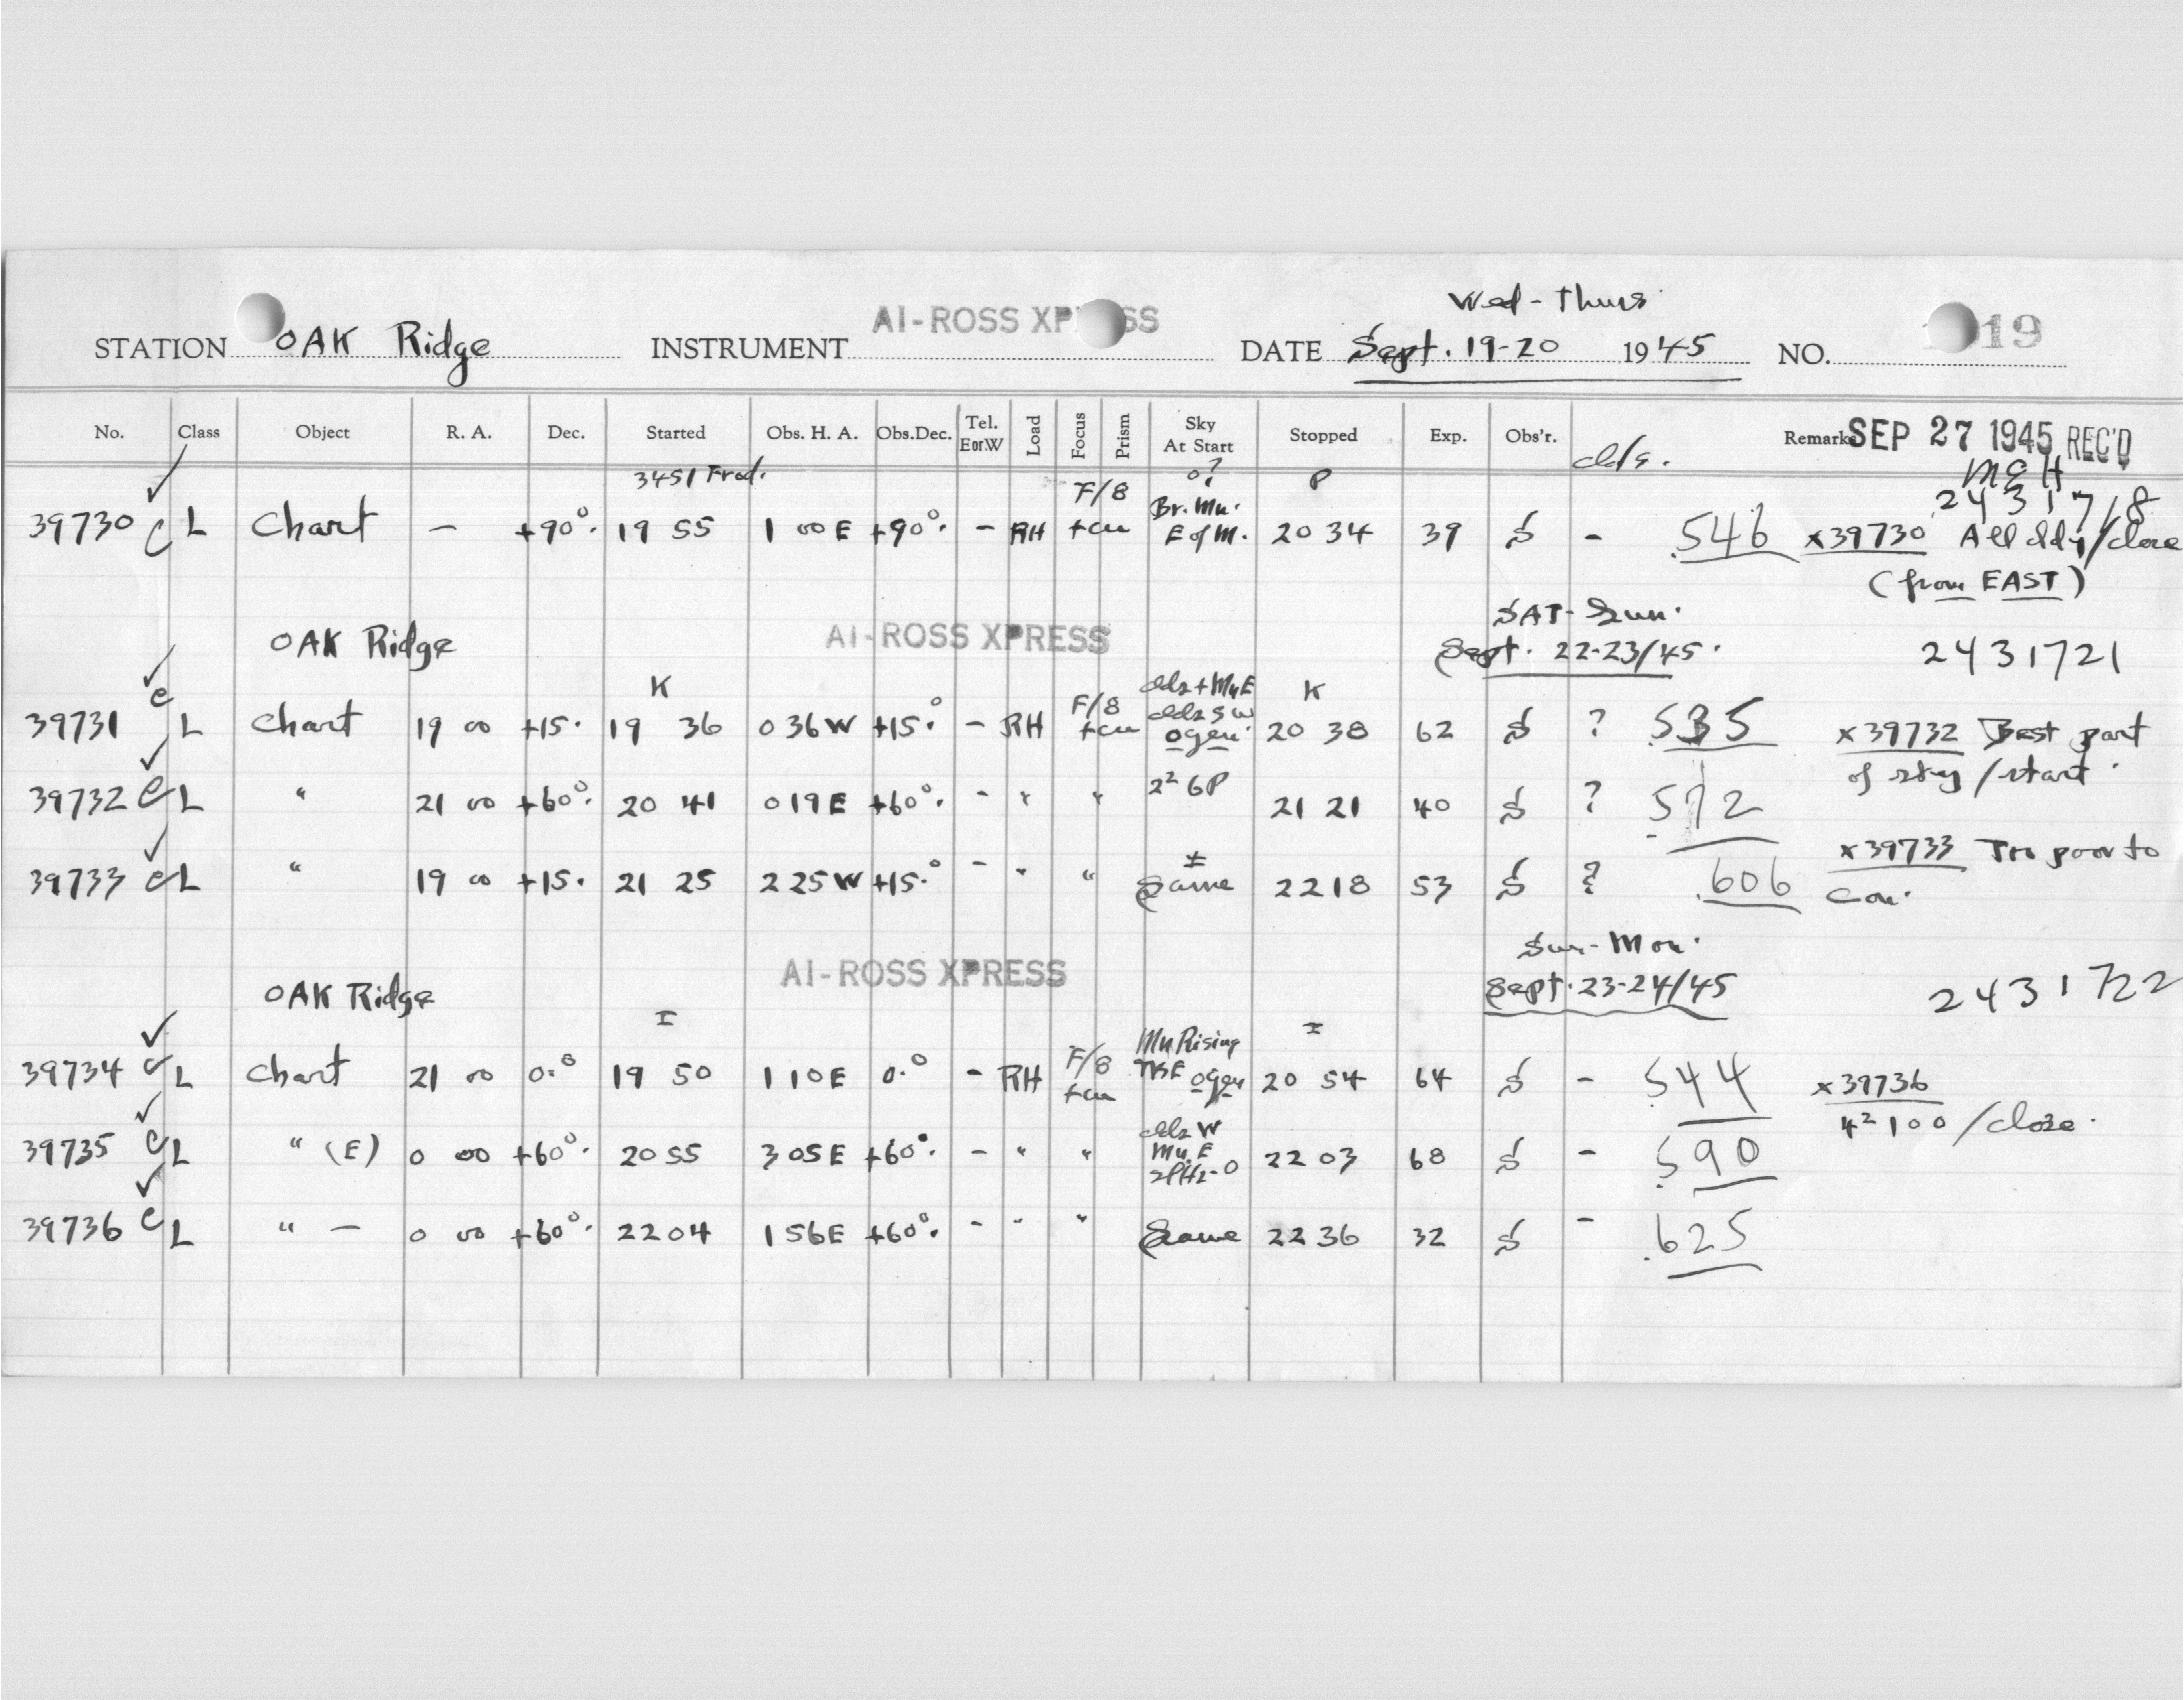 Wed - Thurs
STATION OAK Ridge INSTRUMENT AI-ROSS XP SS DATE Sept. 19-20 1945 NO. 19
No. Class Object R. A. Dec. Started Obs. H. A. Obs.Dec. Tel. E or W Load Focus Prism Sky At Start Stopped Exp. Obs'r. clds. Remarks SEP 27 1945 REC'D
3451 Frod. o? P M&H
F/8 Br. Mn. 2431718
39730 C L Chart - +90°. 19 55 1 00 E +90°. - RH E of M. 20 34 39 S - .546 x39730 All cldy/close
(from EAST)
SAT-Sun.
OAK Ridge AI-ROSS XPRESS Sept. 22-23/45. 2431721
K clds + Mn E K
39731 C L Chart 19 00 +15. 19 36 0 36 W +15.° - RH F/8 clds SW ogen. 20 38 62 S ? .535 x39732 Best part
of sky/start.
39732 C L " 21 00 +60°. 20 41 0 19 E +60°. - " " 2² 6P 21 21 40 S ? .572
39733 C L " 19 00 +15. 21 25 2 25 W +15.° - " " ± Same 22 18 53 S ? .606 x39733 Too poor to
con.
Sun-Mon.
OAK Ridge AI-ROSS XPRESS Sept. 23-24/45 2431722
I Mn Rising I
39734 C L Chart 21 00 0.° 19 50 1 10 E 0.° - RH F/8 ogen 20 54 64 S - .544 x39736
4² 100/close.
39735 C L " (E) 0 00 +60°. 20 55 3 05 E +60°. - " " clds W Mn. E 22 03 68 S - .590
39736 C L " - 0 00 +60°. 22 04 1 56 E +60°. - " " Same 22 36 32 S - .625